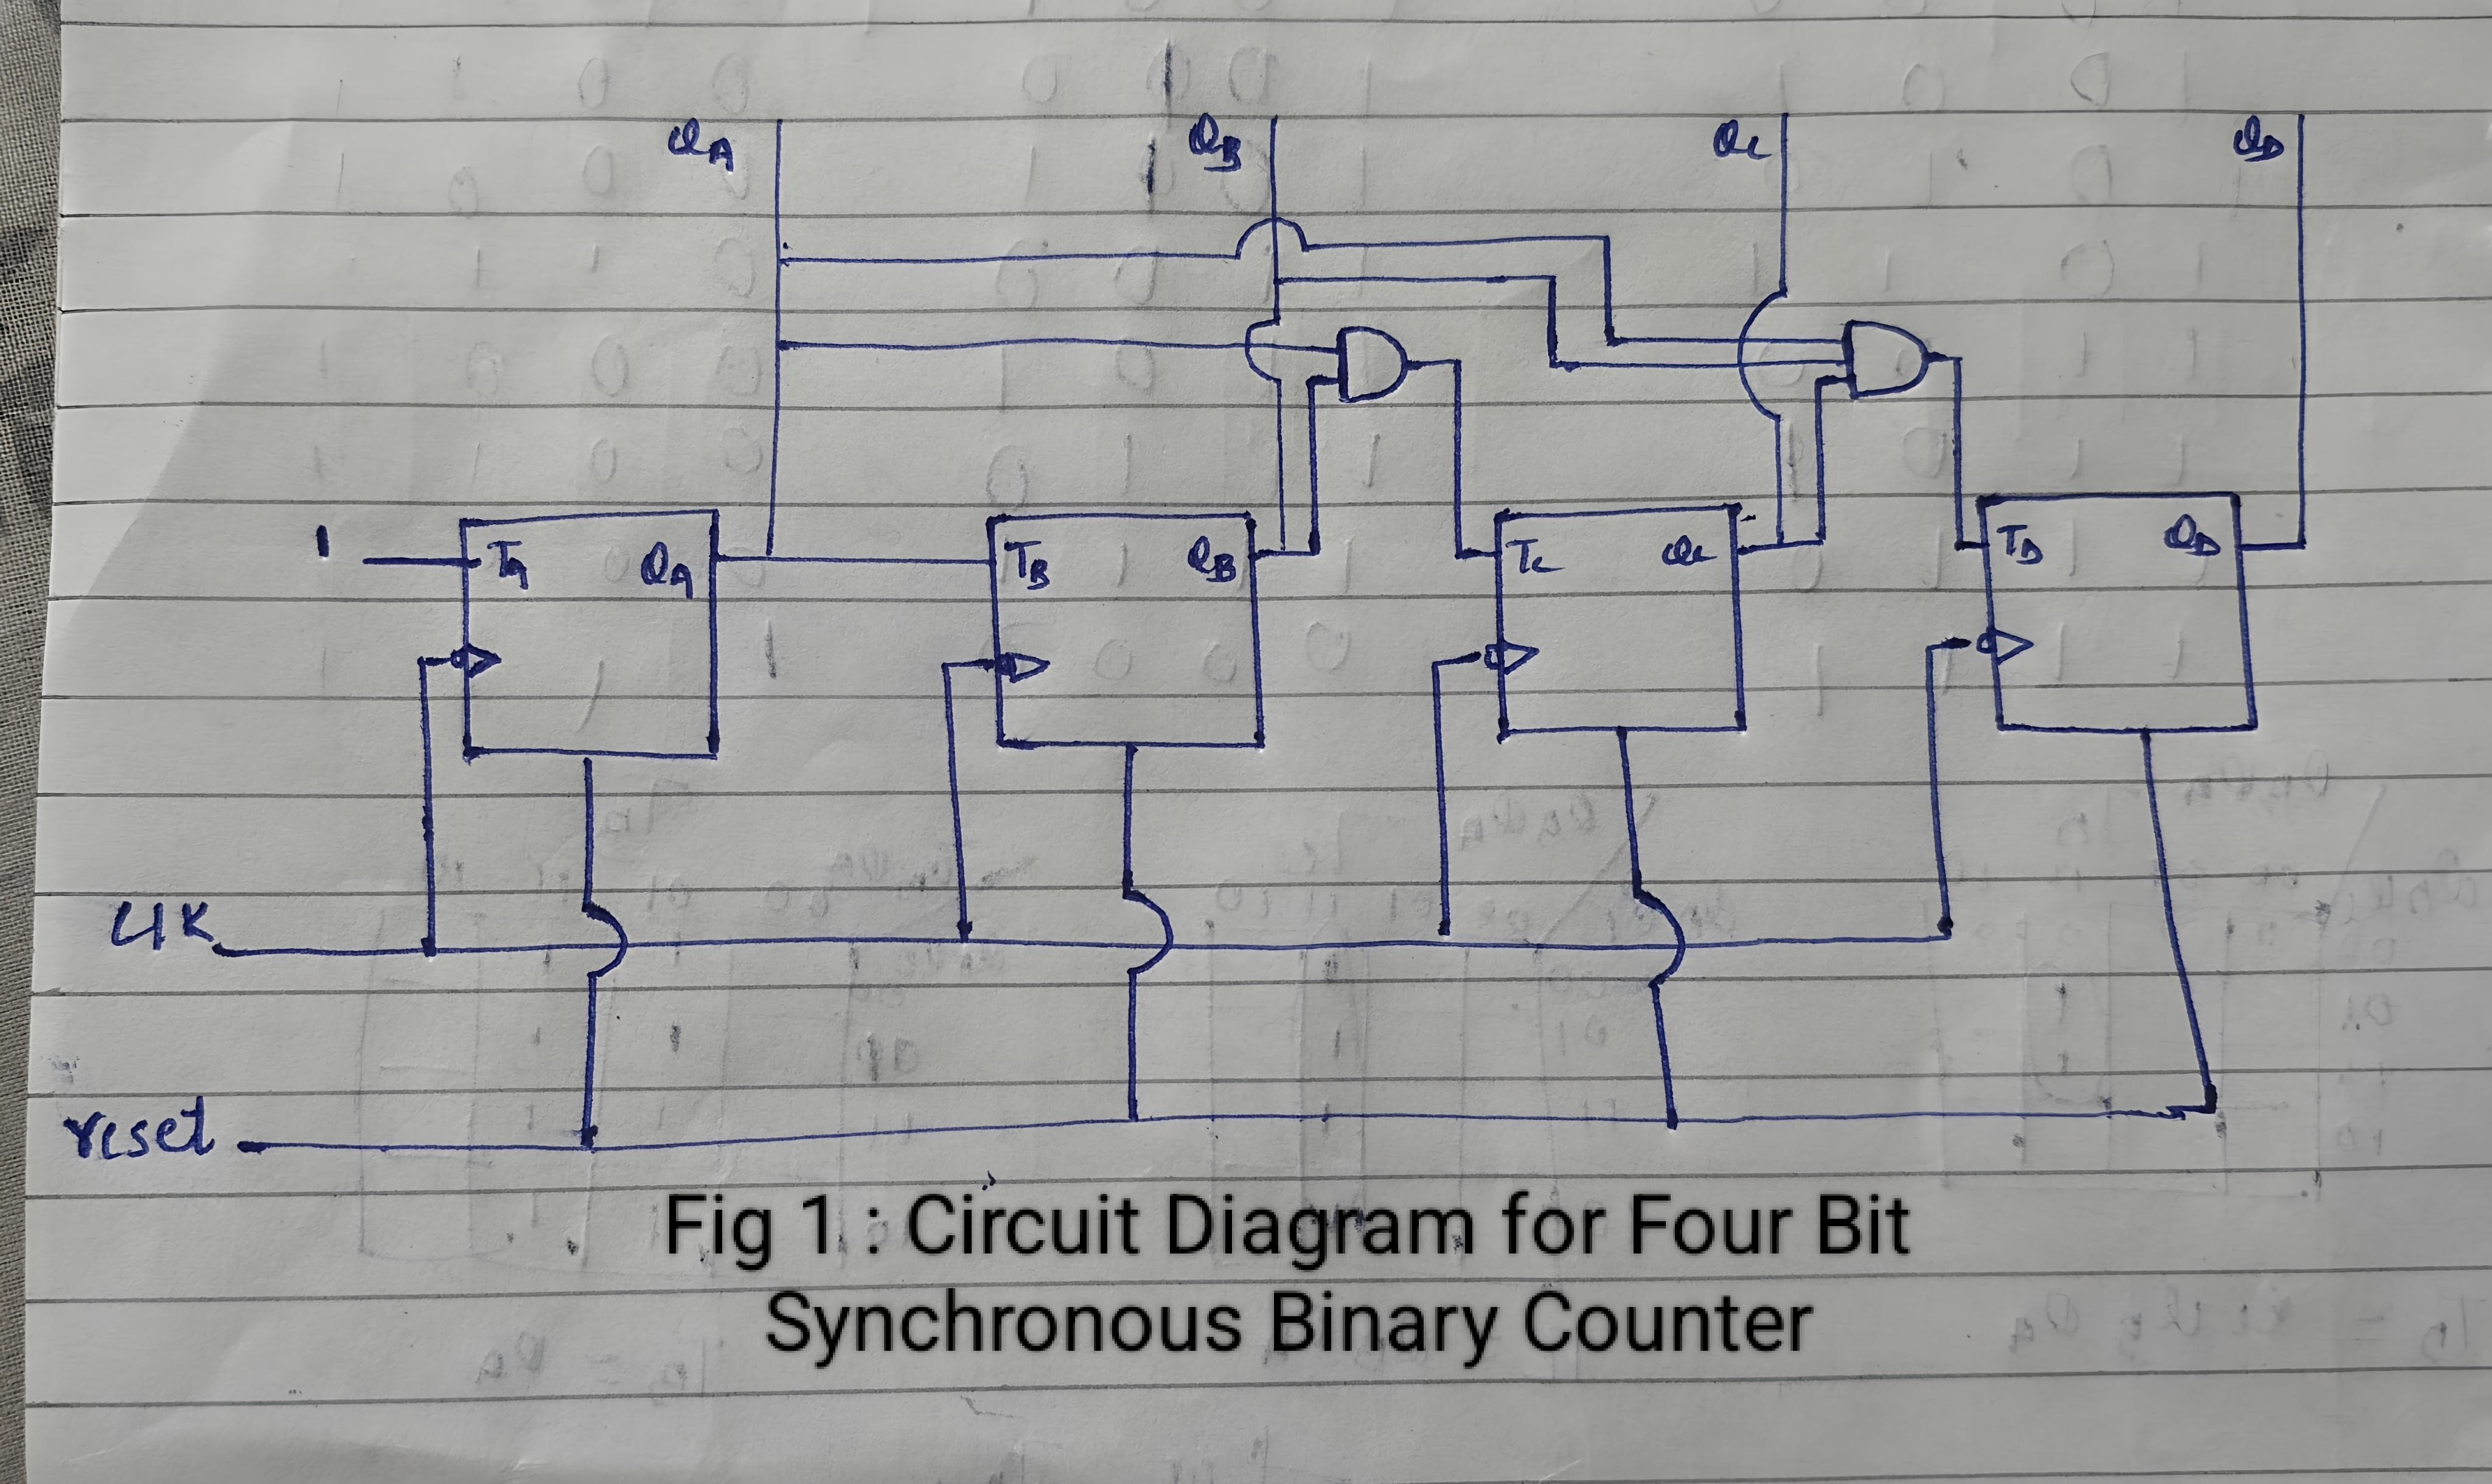 QA QB QC QD
1 TA QA TB QB TC QC TD QD
CLK
reset
Fig 1 : Circuit Diagram for Four Bit
Synchronous Binary Counter